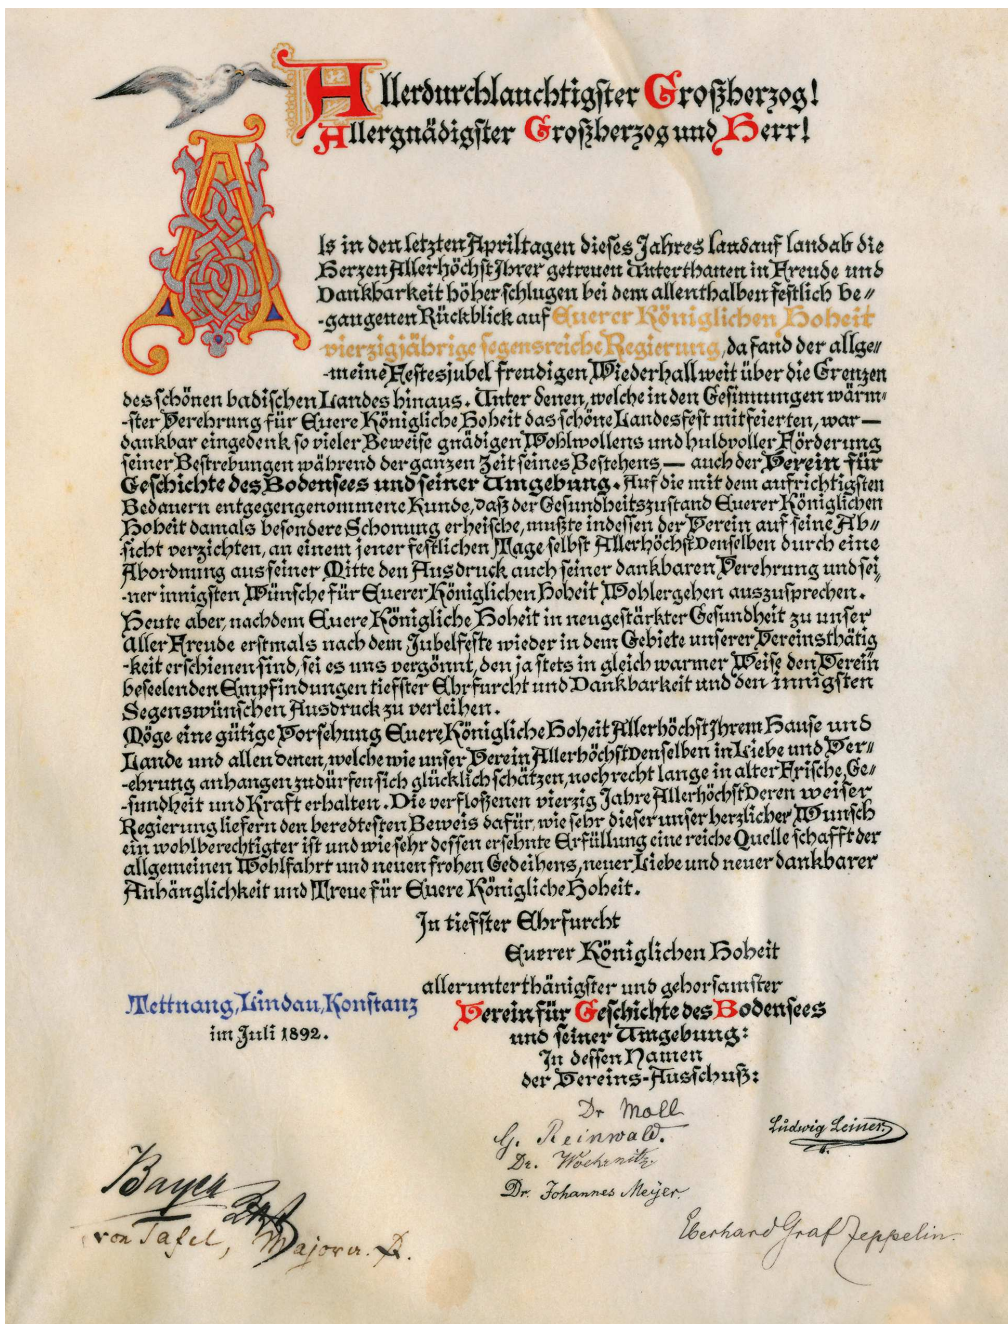 Allerdurchlauchtigster Großherzog!
Allergnädigster Großherzog und Herr!
Als in den letzten Apriltagen dieses Jahres landauf landab die
Herzen Allerhöchst Ihrer getreuen Unterthanen in Freude und
Dankbarkeit höher schlugen bei dem allenthalben festlich be„
-gangenen Rückblick auf Euerer Königlichen Hoheit
vierzigjährige segensreiche Regierung, da fand der allge„
-meine Festesjubel freudigen Wiederhall weit über die Grenzen
des schönen badischen Landes hinaus. Unter denen, welche in den Gesinnungen wärm-
-ster Verehrung für Euere Königliche Hoheit das schöne Landesfest mitfeierten, war —
dankbar eingedenk so vieler Beweise gnädigen Wohlwollens und huldvoller Förderung
seiner Bestrebungen während der ganzen Zeit seines Bestehens — auch der Verein für
Geschichte des Bodensees und seiner Umgebung. Auf die mit dem aufrichtigsten
Bedauern entgegengenommene Kunde, daß der Gesundheitszustand Euerer Königlichen
Hoheit damals besondere Schonung erheische, mußte indessen der Verein auf seine Ab„
-sicht verzichten, an einem jener festlichen Tage selbst Allerhöchst Denselben durch eine
Abordnung aus seiner Mitte den Ausdruck auch seiner dankbaren Verehrung und sei-
-ner innigsten Wünsche für Euerer Königlichen Hoheit Wohlergehen auszusprechen.
Heute aber, nachdem Euere Königliche Hoheit in neugestärkter Gesundheit zu unser
Aller Freude erstmals nach dem Jubelfeste wieder in dem Gebiete unserer Vereinsthätig
-keit erschienen sind, sei es uns vergönnt, den ja stets in gleich warmer Weise den Verein
beseelenden Empfindungen tiefster Ehrfurcht und Dankbarkeit und den innigsten
Segenswünschen Ausdruck zu verleihen.
Möge eine gütige Vorsehung Euere Königliche Hoheit Allerhöchst Ihrem Hause und
Lande und allen denen, welche wie unser Verein Allerhöchst Denselben in Liebe und Ver„
-ehrung anhangen zu dürfen sich glücklich schätzen, noch recht lange in alter Frische, Ge„
-sundheit und Kraft erhalten. Die verfloßenen vierzig Jahre Allerhöchst Deren weiser
Regierung liefern den beredtesten Beweis dafür, wie sehr dieser unser herzlicher Wunsch
ein wohlberechtigter ist und wie sehr dessen ersehnte Erfüllung eine reiche Quelle schafft der
allgemeinen Wohlfahrt und neuen frohen Gedeihens, neuer Liebe und neuer dankbarer
Anhänglichkeit und Treue für Euere Königliche Hoheit.
In tiefster Ehrfurcht
Euerer Königlichen Hoheit
allerunterthänigster und gehorsamster
Tettnang, Lindau, Konstanz
im Juli 1892.
Verein für Geschichte des Bodensees
und seiner Umgebung:
In dessen Namen
der Vereins-Ausschuß:
Dr Moll
G. Reinwald.
Ludwig Leiner.
Dr.
Dr. Johannes Meyer.
von Tafel, Major a. D.
Eberhard Graf Zeppelin.